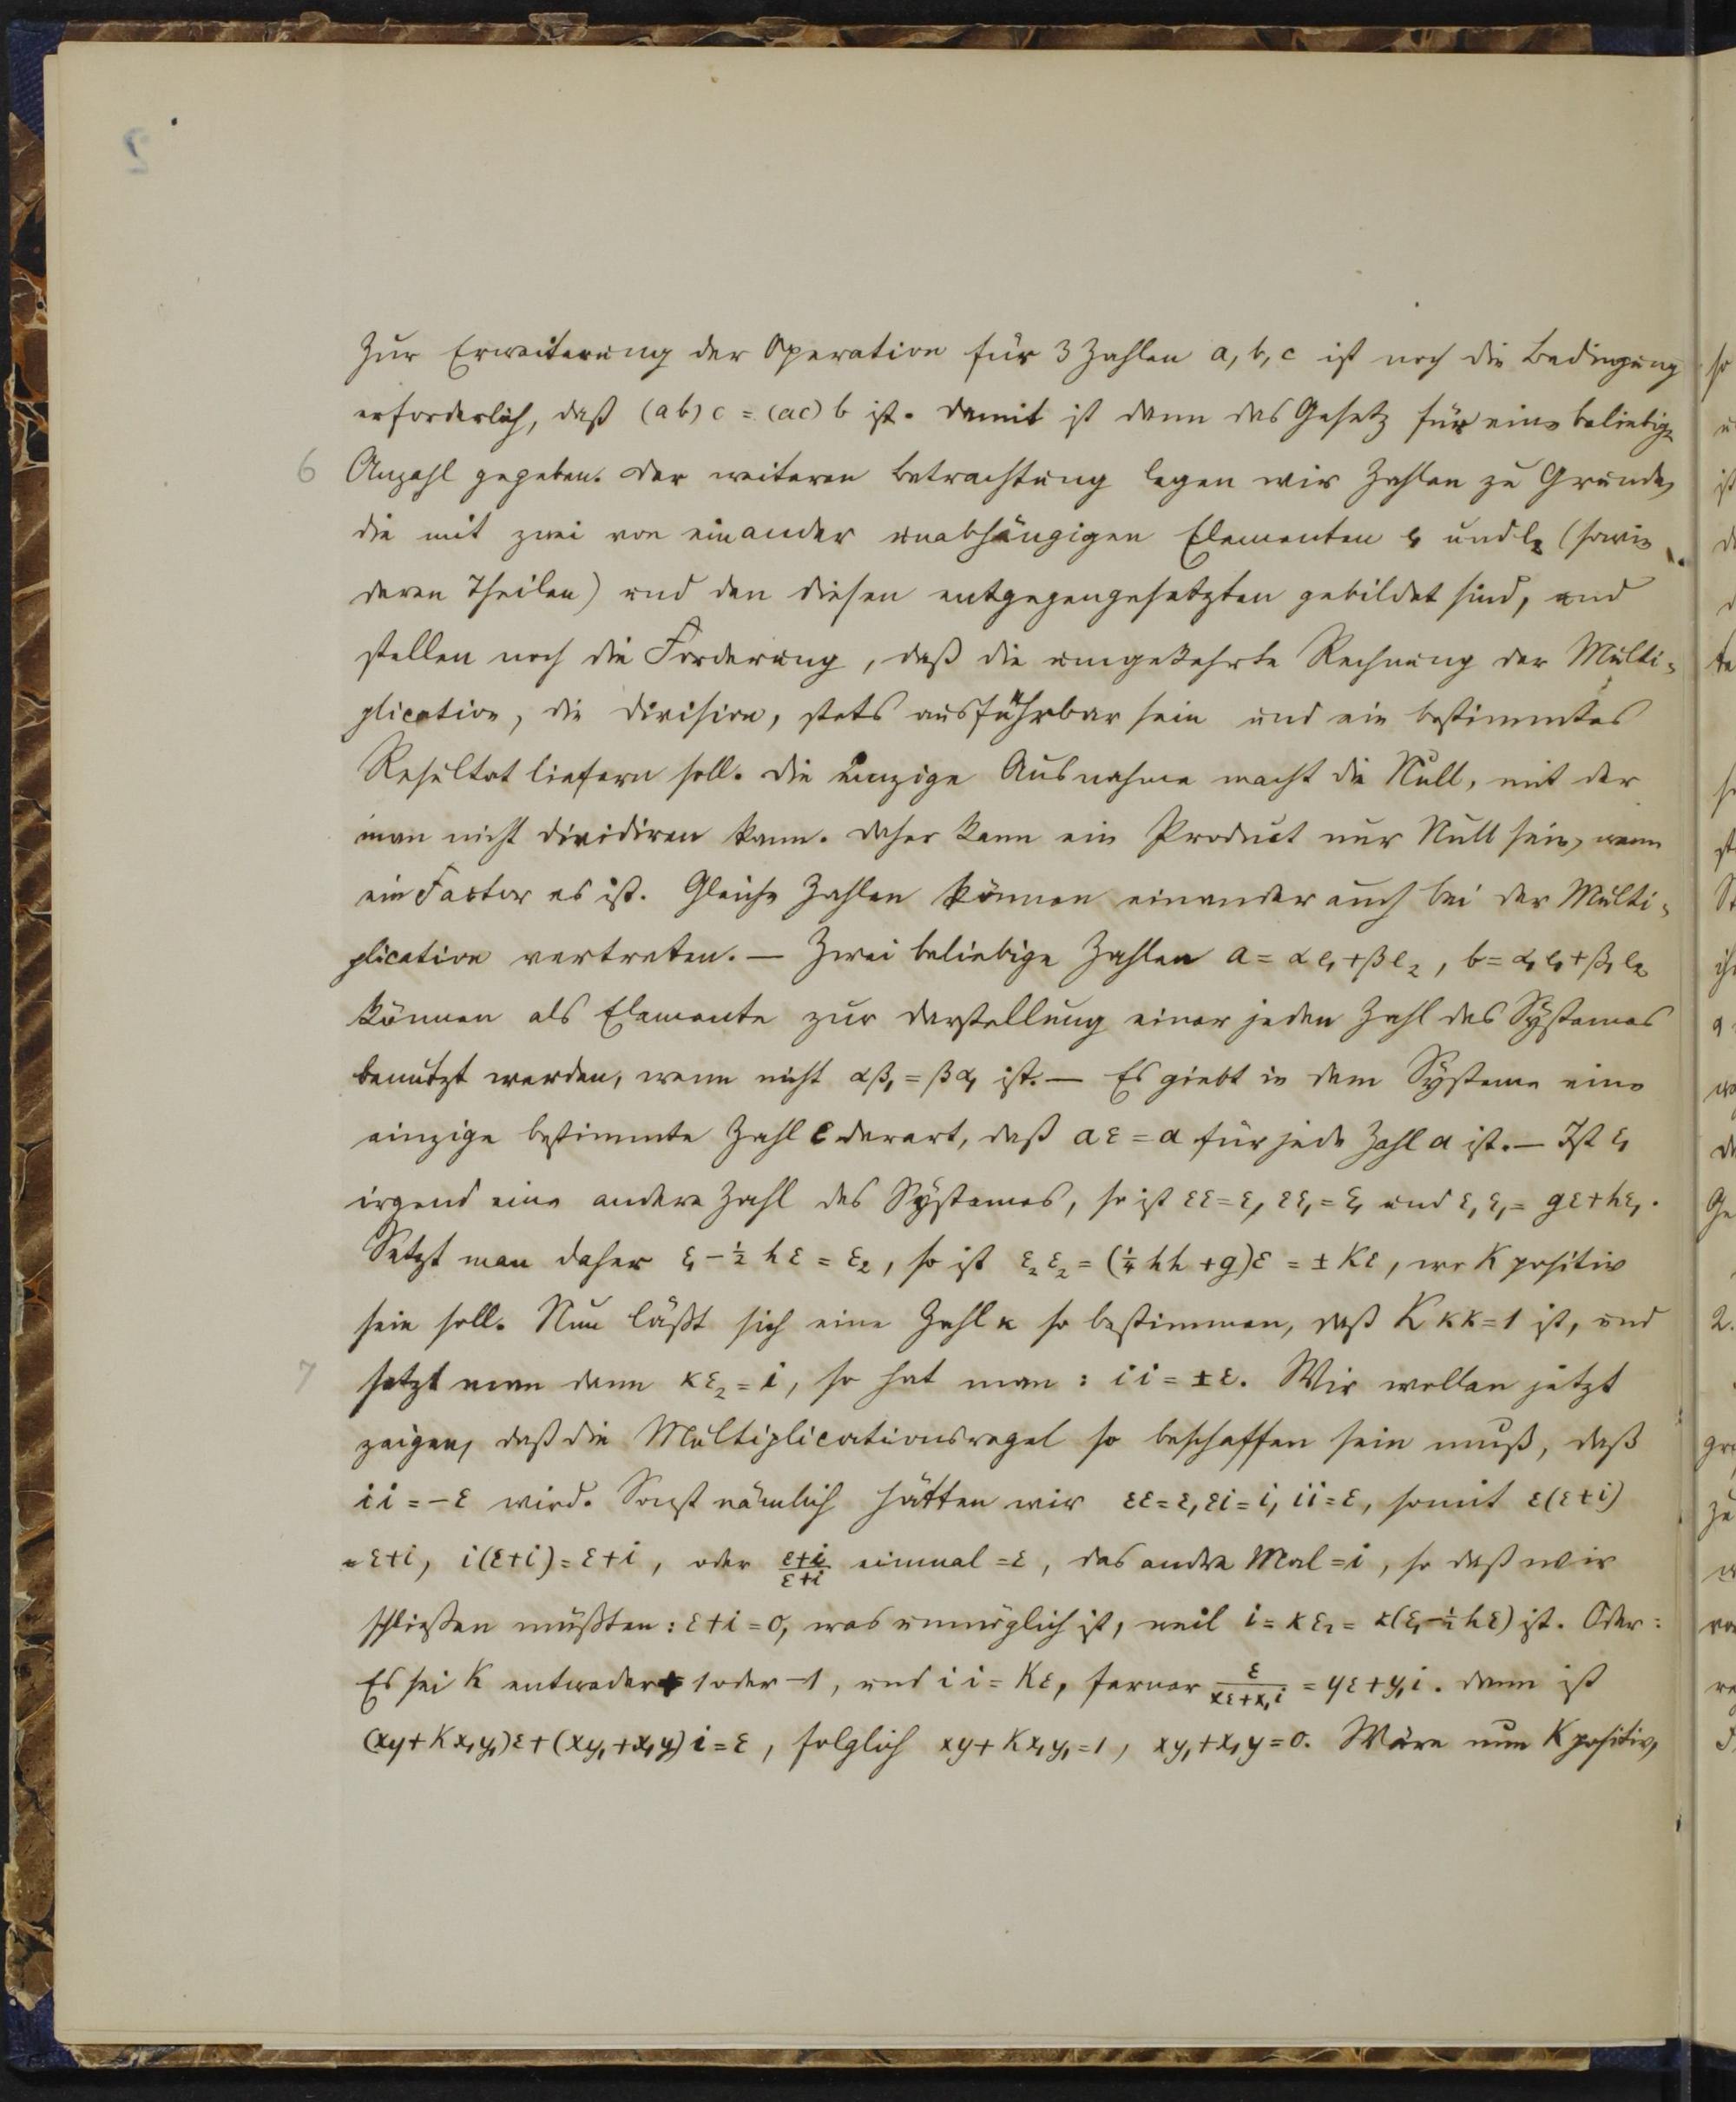 Zur Erweiterung der Operation für 3 Zahlen a, b, c ist noch die Bedingung
erforderlich, daß (ab)c = (ac)b ist. Damit ist dann das Gesetz für eine beliebige
6 Anzahl gegeben. Der weiteren Betrachtung legen wir Zahlen zu Grunde,
die mit zwei von einander unabhängigen Elementen e₁ und e₂ (sowie
deren Theilen) und den diesen entgegengesetzten gebildet sind, und
stellen noch die Forderung, daß die umgekehrte Rechnung der Multi-
plication, die Division, stets ausführbar sein und ein bestimmtes
Resultat liefern soll. Die einzige Ausnahme macht die Null, mit der
man nicht dividiren kann. Daher kann ein Product nur Null sein, wenn
ein Factor es ist. Gleiche Zahlen können einander auch bei der Multi-
plication vertreten. — Zwei beliebige Zahlen a = αe₁+βe₂, b = α₁e₁+β₁e₂
können als Elemente zur Darstellung einer jeden Zahl des Systemes
benutzt werden, wenn nicht αβ₁ = βα₁ ist. — Es giebt in dem Systeme eine
einzige bestimmte Zahl ε derart, daß aε = a für jede Zahl a ist. — Ist ε₁
irgend eine andere Zahl des Systemes, so ist εε = ε, εε₁ = ε₁ und ε₁ε₁ = gε+hε₁.
Setzt man daher ε₁ - ½hε = ε₂, so ist ε₂ε₂ = (¼hh + g)ε = ± Kε, wo K positiv
sein soll. Nun läßt sich eine Zahl κ so bestimmen, daß Kκκ = 1 ist, und
7 setzt man dann κε₂ = i, so hat man: ii = ±ε. Wir wollen jetzt
zeigen, daß die Multiplicationsregel so beschaffen sein muß, daß
ii = -ε wird. Sonst nämlich hätten wir εε = ε, εi = i, ii = ε, somit ε(ε+i)
= ε+i, i(ε+i) = ε+i, oder (ε+i)/(ε+i) einmal = ε, das andre Mal = i, so daß wir
schließen müßten: ε+i = 0, was unmöglich ist, weil i = κε₂ = κ(ε₁-½hε) ist. Oder:
Es sei K entweder + 1 oder -1, und ii = Kε, ferner ε/(xε+x₁i) = yε+y₁i. Dann ist
(xy+Kx₁y₁)ε+(xy₁+x₁y)i = ε, folglich xy+Kx₁y₁ = 1, xy₁+x₁y = 0. Wäre nun K positiv,